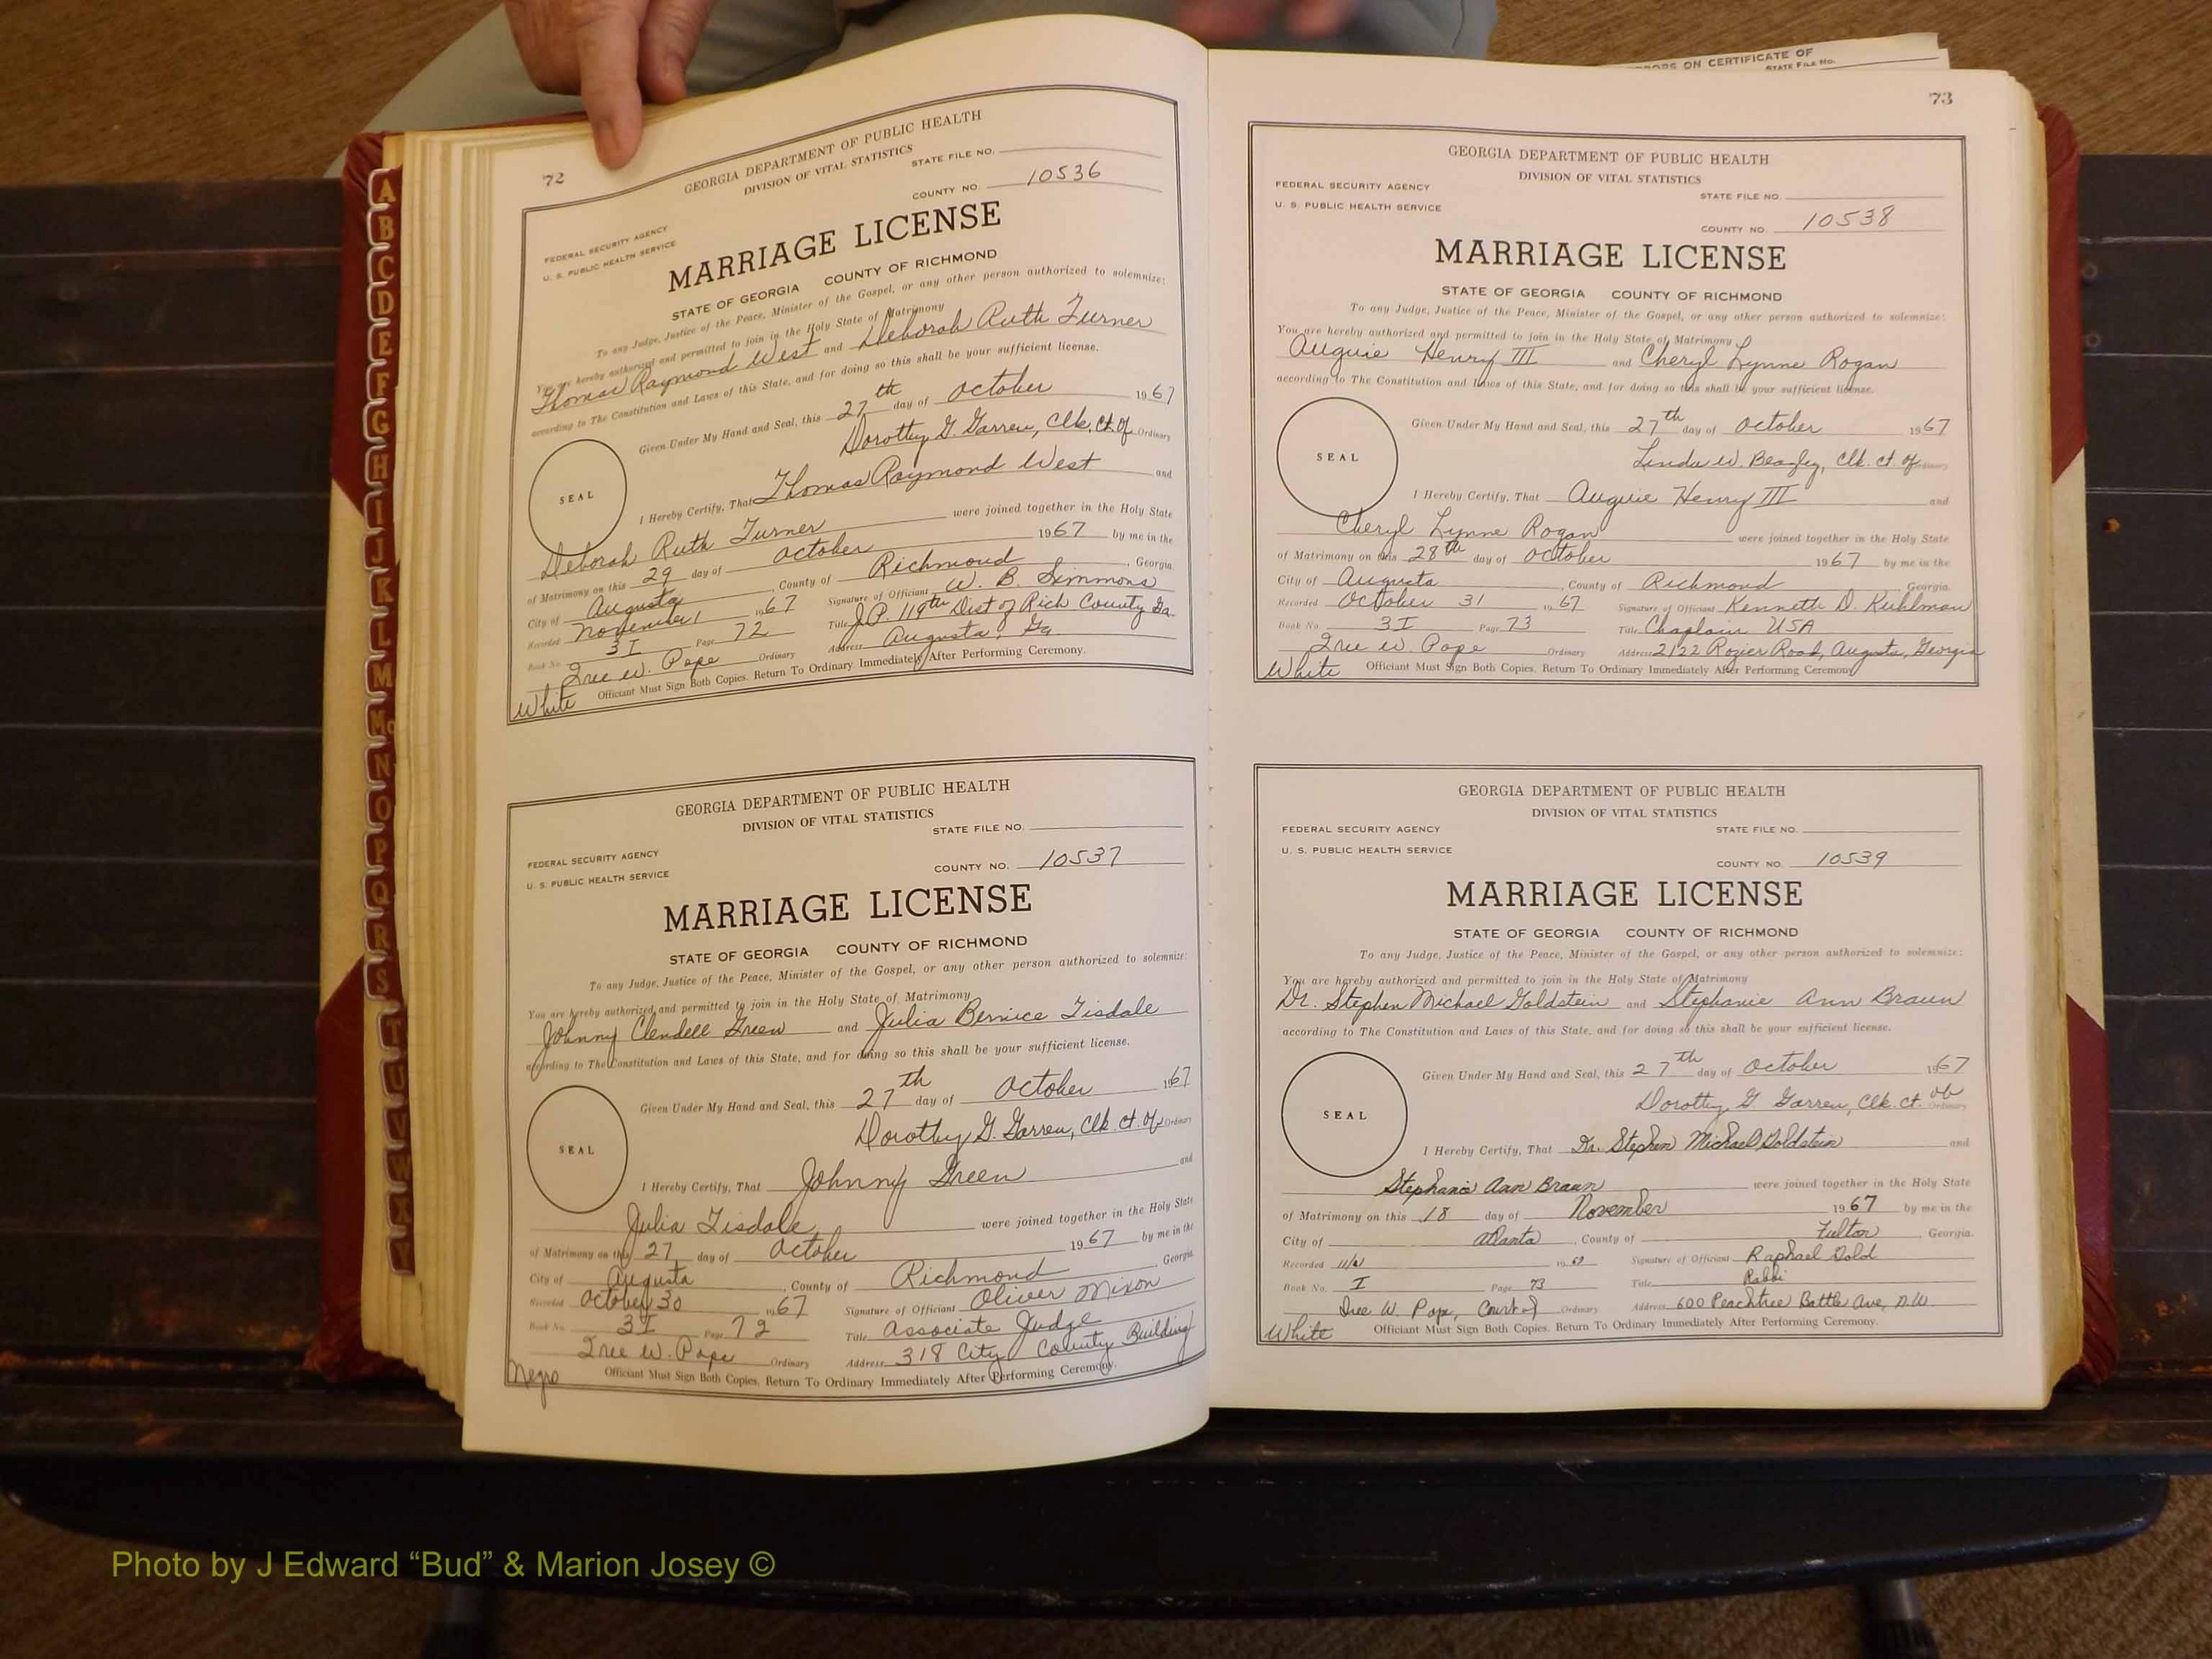 ORS ON CERTIFICATE OF
STATE FILE NO.
A
B
C
D
E
F
G
H
I
J
K
L
M
Mc
N
O
P
Q
R
S
T
U
V
W
X
Y
72
GEORGIA DEPARTMENT OF PUBLIC HEALTH
DIVISION OF VITAL STATISTICS
STATE FILE NO.
COUNTY NO. 10536
FEDERAL SECURITY AGENCY
U. S. PUBLIC HEALTH SERVICE
MARRIAGE LICENSE
STATE OF GEORGIA COUNTY OF RICHMOND
To any Judge, Justice of the Peace, Minister of the Gospel, or any other person authorized to solemnize:
You are hereby authorized and permitted to join in the Holy State of Matrimony
Thomas Raymond West and Deborah Ruth Turner
according to The Constitution and Laws of this State, and for doing so this shall be your sufficient license.
Given Under My Hand and Seal, this 27th day of October 1967
Dorothy G. Garren, Clk. Ct. of Ordinary
SEAL
I Hereby Certify, That Thomas Raymond West and
Deborah Ruth Turner were joined together in the Holy State
of Matrimony on this 29 day of October 1967 by me in the
City of Augusta, County of Richmond, Georgia.
Recorded November 1 1967 Signature of Officiant W. B. Simmons
Book No. 3 I Page 72 Title J.P. 119th Dist of Rich County Ga.
Iree W. Pope Ordinary Address Augusta, Ga.
White Officiant Must Sign Both Copies. Return To Ordinary Immediately After Performing Ceremony.
GEORGIA DEPARTMENT OF PUBLIC HEALTH
DIVISION OF VITAL STATISTICS
STATE FILE NO.
FEDERAL SECURITY AGENCY
U. S. PUBLIC HEALTH SERVICE
COUNTY NO. 10537
MARRIAGE LICENSE
STATE OF GEORGIA COUNTY OF RICHMOND
To any Judge, Justice of the Peace, Minister of the Gospel, or any other person authorized to solemnize:
You are hereby authorized and permitted to join in the Holy State of Matrimony
Johnny Clendell Green and Julia Bernice Tisdale
according to The Constitution and Laws of this State, and for doing so this shall be your sufficient license.
Given Under My Hand and Seal, this 27th day of October 1967
Dorothy G. Garren, Clk. Ct. of Ordinary
SEAL
I Hereby Certify, That Johnny Green and
Julia Tisdale were joined together in the Holy State
of Matrimony on this 27 day of October 1967 by me in the
City of Augusta, County of Richmond, Georgia.
Recorded October 30 1967 Signature of Officiant Oliver Mixon
Book No. 3 I Page 72 Title Associate Judge
Iree W. Pope Ordinary Address 318 City County Building
Negro Officiant Must Sign Both Copies. Return To Ordinary Immediately After Performing Ceremony.
73
GEORGIA DEPARTMENT OF PUBLIC HEALTH
DIVISION OF VITAL STATISTICS
FEDERAL SECURITY AGENCY
STATE FILE NO.
U. S. PUBLIC HEALTH SERVICE
COUNTY NO. 10538
MARRIAGE LICENSE
STATE OF GEORGIA COUNTY OF RICHMOND
To any Judge, Justice of the Peace, Minister of the Gospel, or any other person authorized to solemnize:
You are hereby authorized and permitted to join in the Holy State of Matrimony
Auguie Henry III and Cheryl Lynne Rogan
according to The Constitution and Laws of this State, and for doing so this shall be your sufficient license.
Given Under My Hand and Seal, this 27th day of October 1967
Linda W. Beazley, Clk. Ct. of Ordinary
SEAL
I Hereby Certify, That Auguie Henry III and
Cheryl Lynne Rogan were joined together in the Holy State
of Matrimony on this 28th day of October 1967 by me in the
City of Augusta, County of Richmond, Georgia.
Recorded October 31 1967 Signature of Officiant Kenneth D. Kuhlman
Book No. 3 I Page 73 Title Chaplain USA
Iree W. Pope Ordinary Address 2122 Rozier Road, Augusta, Georgia
White Officiant Must Sign Both Copies. Return To Ordinary Immediately After Performing Ceremony
GEORGIA DEPARTMENT OF PUBLIC HEALTH
DIVISION OF VITAL STATISTICS
FEDERAL SECURITY AGENCY
STATE FILE NO.
U. S. PUBLIC HEALTH SERVICE
COUNTY NO. 10539
MARRIAGE LICENSE
STATE OF GEORGIA COUNTY OF RICHMOND
To any Judge, Justice of the Peace, Minister of the Gospel, or any other person authorized to solemnize:
You are hereby authorized and permitted to join in the Holy State of Matrimony
Dr. Stephen Michael Goldstein and Stephanie Ann Braun
according to The Constitution and Laws of this State, and for doing so this shall be your sufficient license.
Given Under My Hand and Seal, this 27th day of October 1967
Dorothy G. Garren, Clk. Ct. of Ordinary
SEAL
I Hereby Certify, That Dr. Stephen Michael Goldstein and
Stephanie Ann Braun were joined together in the Holy State
of Matrimony on this 18 day of November 1967 by me in the
City of Atlanta, County of Fulton, Georgia.
Recorded 19 Signature of Officiant Raphael Gold
Book No. I Page 73 Title Rabbi
Iree W. Pope, Court of Ordinary Address 600 Peachtree Battle Ave, N.W.
White Officiant Must Sign Both Copies. Return To Ordinary Immediately After Performing Ceremony.
Photo by J Edward “Bud” & Marion Josey ©